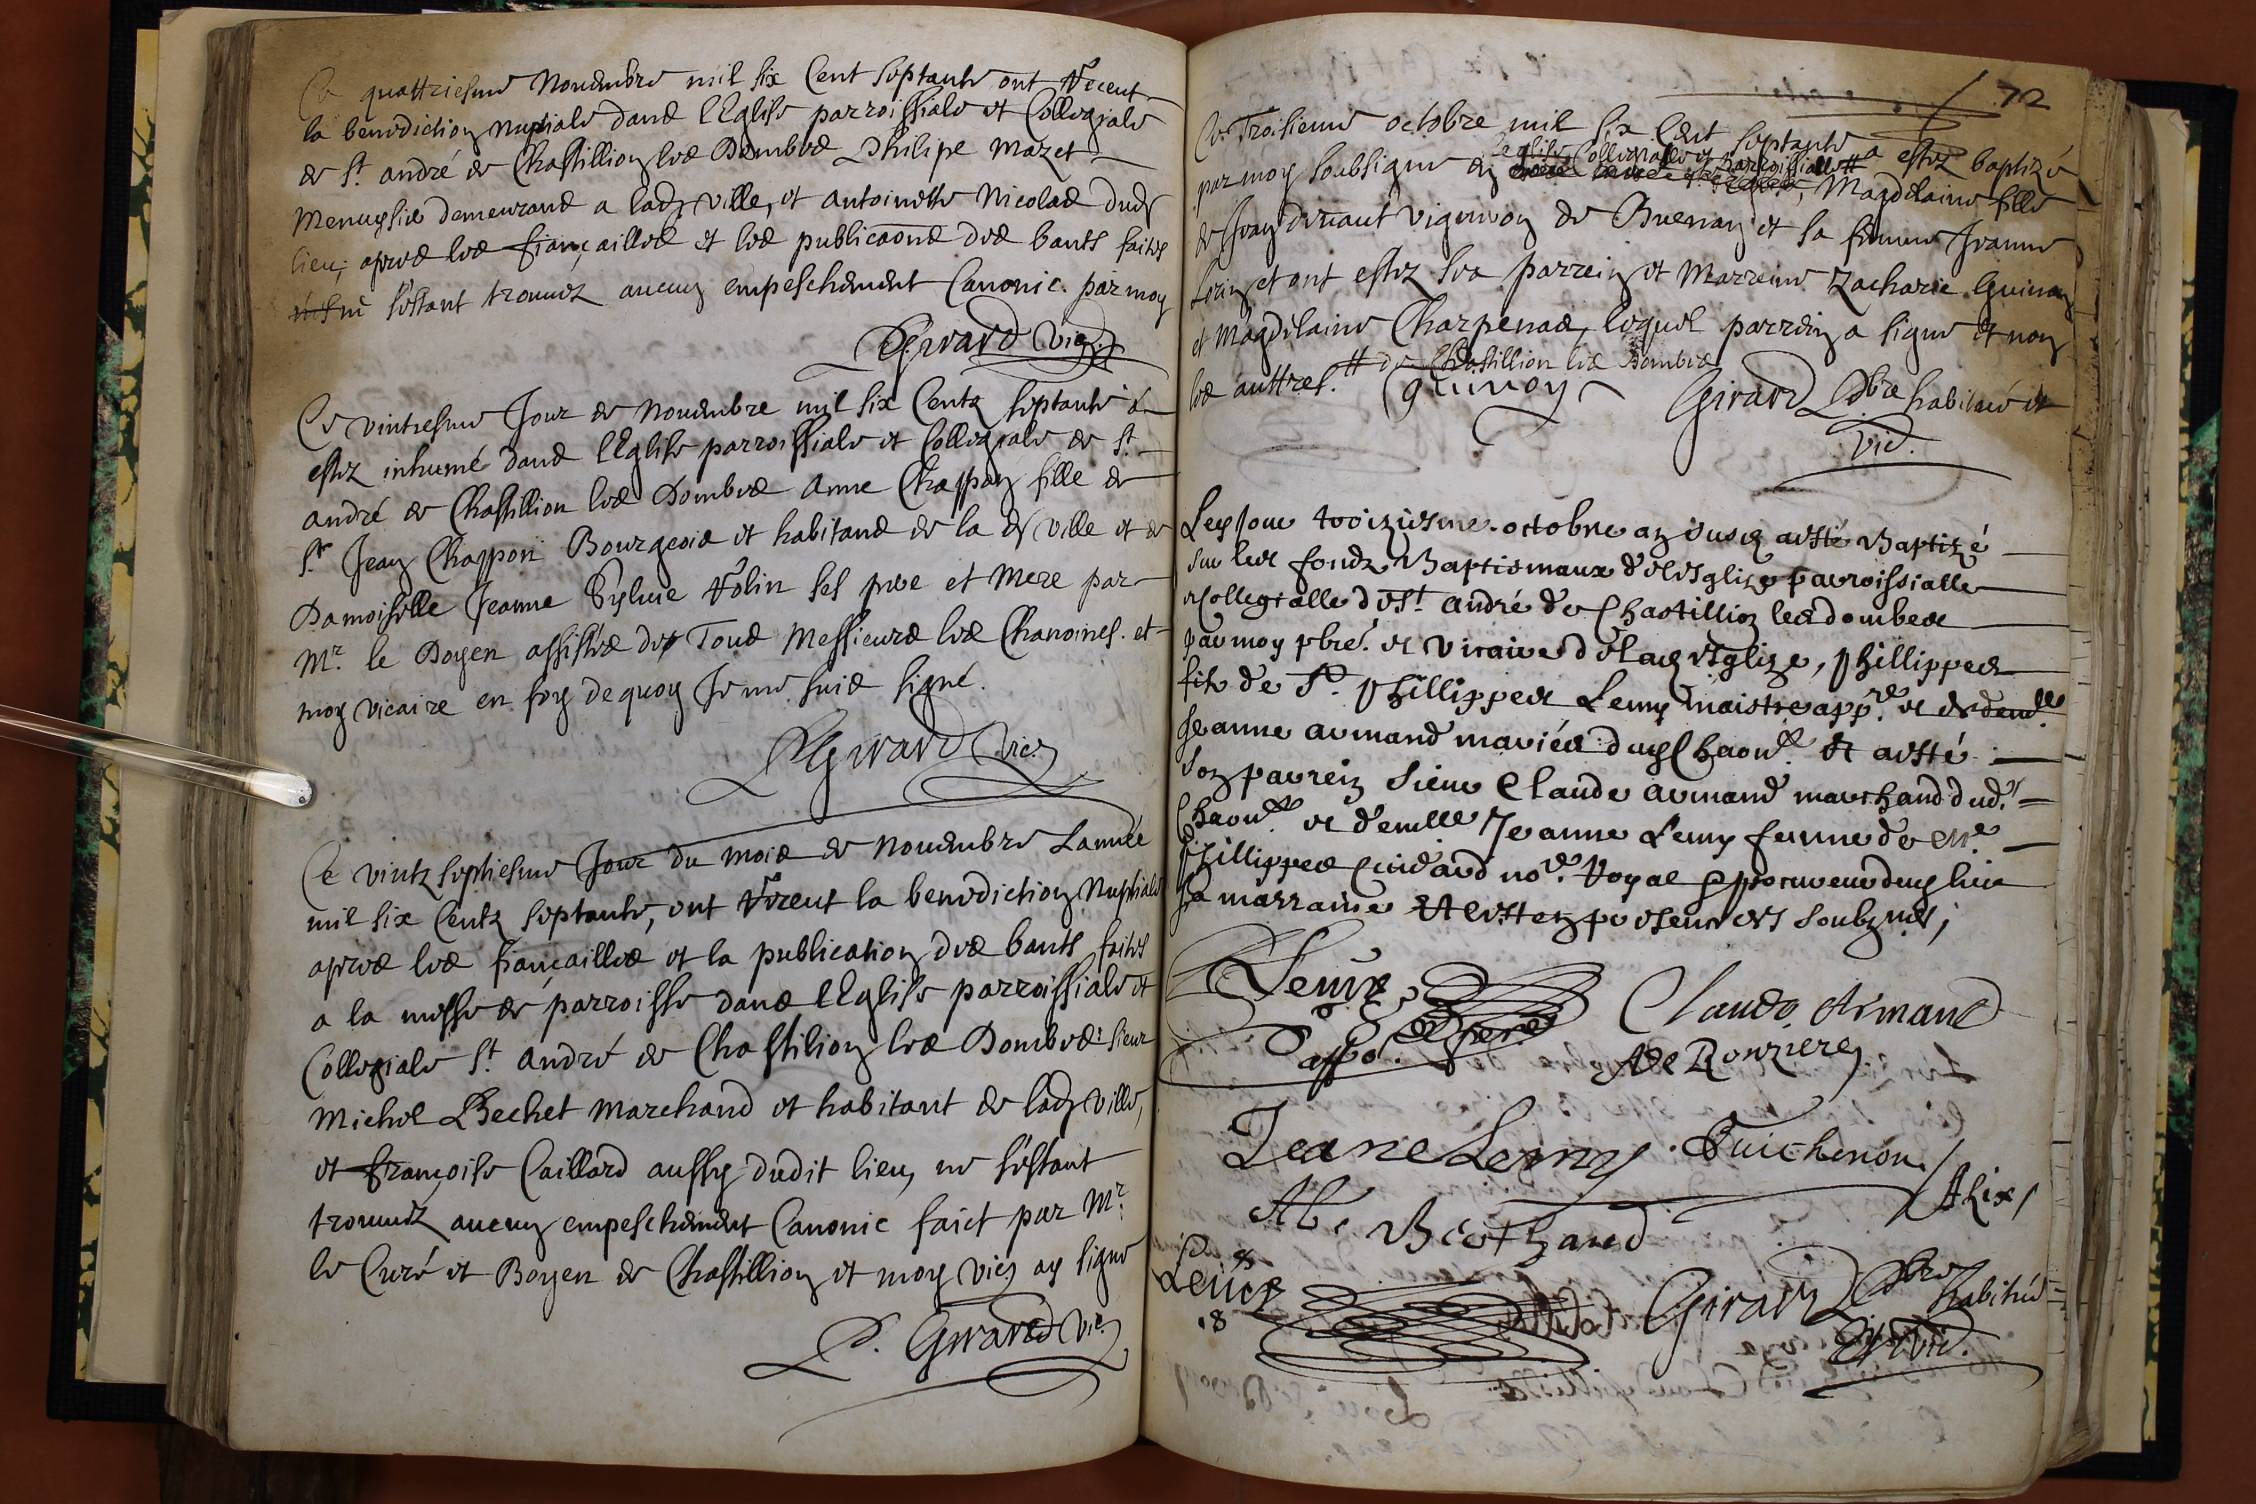 Ce quattriesme Novembre mil six Cent septante ont Receut
la benediction Nuptiale dans lEglise parroissiale et Collegiale
de St. andré de Chastillion les Dombes Philipe Mazet
Menuysié demeurans a lad. ville, et antoinette Nicolas dud.
lieu; apres les fiançailles et les publicaons des bants faites
s'estant trouvéz aucun empeschement Canonic. par moy
Girard vic.
Ce vintiesme Jour de Novembre mil six Centz septante a
estez inhumé dans lEglise parroissiale et Collegiale de St.
andré de Chastillion les Dombes anne Chappon fille de
Sr. Jean Chappon Bourgeois et habitans de la d. ville et de
Damoiselle Jeanne Sylvie Volin ses pere et Mere par
Mr. le Doyen assistés de Tous Messieurs les Chanoines. et
moy vicaire en foy de quoy Je me suis signé.
Girard vic.
Ce vintz septiesme Jour du mois de Novembre Lannée
mil six Centz septante, ont Receut la benediction Nuptiale
apres les fiançailles et la publication des bants faites
a la messe de parroisse dans lEglise parroissiale et
Collegiale St. andré de Chastilion les Dombes: sieur
Michel Bechet Marchand et habitant de lad. ville,
et françoise Caillard aussy dudit lieu, ne s'estant
trouvéz aucun empeschement Canonic faict par Mr.
le Curé et Doyen de Chastillion et moy vic. ay signé
P. Girard Vic.
72
Ce Troisieme octobre mil six Cent septante a estez baptizé
l'eglise Collegialle et parroissialle #
par moy soubsigné en Magdelaine fille
de Jean divaut vigneron de Buenan et sa femme Jeanne
Lorin et ont estez ses parrein et Marreine Zacharie Guinoy
et Magdelaine Charpenas, lequel parrein a signé et non
les auttres. # de Chastillion les Dombes
Guinoy Girard Pbre habitué et
vic.
Le Jour troiziesme octobre an susd. a esté Baptizé
sur les fondz Baptismaux de l'esglize parroissialle
et Collegialle de St. andré de Chastillion les dombes
par moy pbre. et vicaire de lad. esglize, Phillippes
filz de Sr. Phillippes Leuny maistre app.re et de dem.lle
Jeanne armand mariés dud. Chaon. et a esté
son parrein sieur Claude armand marchand dud.
Chaon. et demlle Jeanne Leuny femme de Me.
Phillippes no.re Royal et procureur dud. lieu
sa marraine et estten presens les soubznés;
Claude Armand
appo. pere
De Ronziere
Jeane Leuny. Guichenon
Alix
Berthaud
Girard Pbre habitué
et vic.